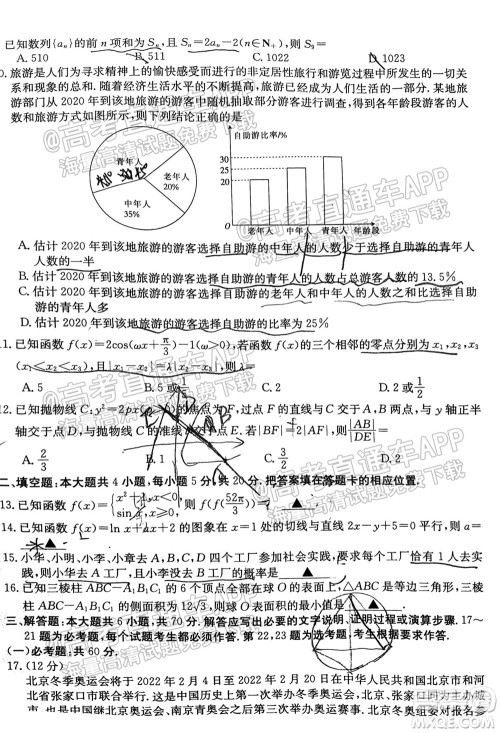 已知数列{aₙ}的前 n 项和为 Sₙ,且 Sₙ=2aₙ-2(n∈N₊),则
A. 510 B. 511 C. 1022 D. 1023
0. 旅游是人们为寻求精神上的愉快感受而进行的非定居性旅行和游览过程中所发生的一切关
系和现象的总和. 随着经济生活水平的不断提高,旅游已经成为人们生活的一部分. 某地旅
游部门从 2020 年到该地旅游的游客中随机抽取部分游客进行调查,得到各年龄段游客的人
数和旅游方式如图所示,则下列结论正确的是
自助游比率/%
30
25
20
青年人
老年人
20%
中年人
35%
老年人 中年人 青年人 年龄段
A. 估计 2020 年到该地旅游的游客选择自助游的中年人的人数少于选择自助游的青年人
人数的一半
B. 估计 2020 年到该地旅游的游客选择自助游的青年人的人数占总游客人数的 13.5%
C. 估计 2020 年到该地旅游的游客选择自助游的老年人和中年人的人数之和比选择自助
游的青年人多
D. 估计 2020 年到该地旅游的游客选择自助游的比率为 25%
11. 已知函数 f(x)=2cos(ωx+π/3)-1(ω>0),若函数 f(x)的三个相邻的零点分别为 x₁,x₂,x₃
(x₁<x₂<x₃),且|x₁-x₂|=λ|x₂-x₃|,则 λ=
A. 5 B. 5或1/5 C. 2 D. 2 或1/2
12. 已知抛物线 C:y²=2px(p>0)的焦点为 F,过点 F 的直线与 C 交于 A,B 两点,与 y 轴正半
轴交于点 D,与 C 的准线交于点 E. 若|BF|=3|AF|,则|AB|/|DE|=
A. 2/3 B. 1
二、填空题:本大题共 4 小题,每小题 5 分,共 20 分. 把答案填在答题卡的相应位置.
13. 已知函数 f(x)={x²+1,x≤0, sin x,x>0, 则 f(f(52π/3))=
14. 已知函数 f(x)=ln x+ax+2 的图象在 x=1 处的切线与直线 2x-y+5=0 平行,则 a=
▲
15. 小华、小明、小李、小章去 A,B,C,D 四个工厂参加社会实践,要求每个工厂恰有 1 人去实
践,则小华去 A 工厂,且小李没去 B 工厂的概率是 ▲
16. 已知三棱柱 ABC-A₁B₁C₁ 的 6 个顶点都在球 O 的表面上,△ABC 是等边三角形. 若三棱
柱 ABC-A₁B₁C₁ 的侧面积为 12√3,则球 O 的表面积的最小值是
三、解答题:本大题共 6 小题,共 70 分. 解答应写出必要的文字说明、证明过程或演算步骤. 17~
21 题为必考题,每个试题考生都必须作答. 第 22,23 题为选考题,考生根据要求作答.
(一)必考题:共 60 分.
17. (12 分)
北京冬季奥运会将于 2022 年 2 月 4 日至 2022 年 2 月 20 日在中华人民共和国北京市和河
北省张家口市联合举行. 这是中国历史上第一次举办冬季奥运会,北京、张家口同为主办城
市,也是中国继北京奥运会、南京青奥会之后第三次举办奥运赛事. 北京冬奥组委对报名参
@高考直通车APP
海量高清试题免费下载